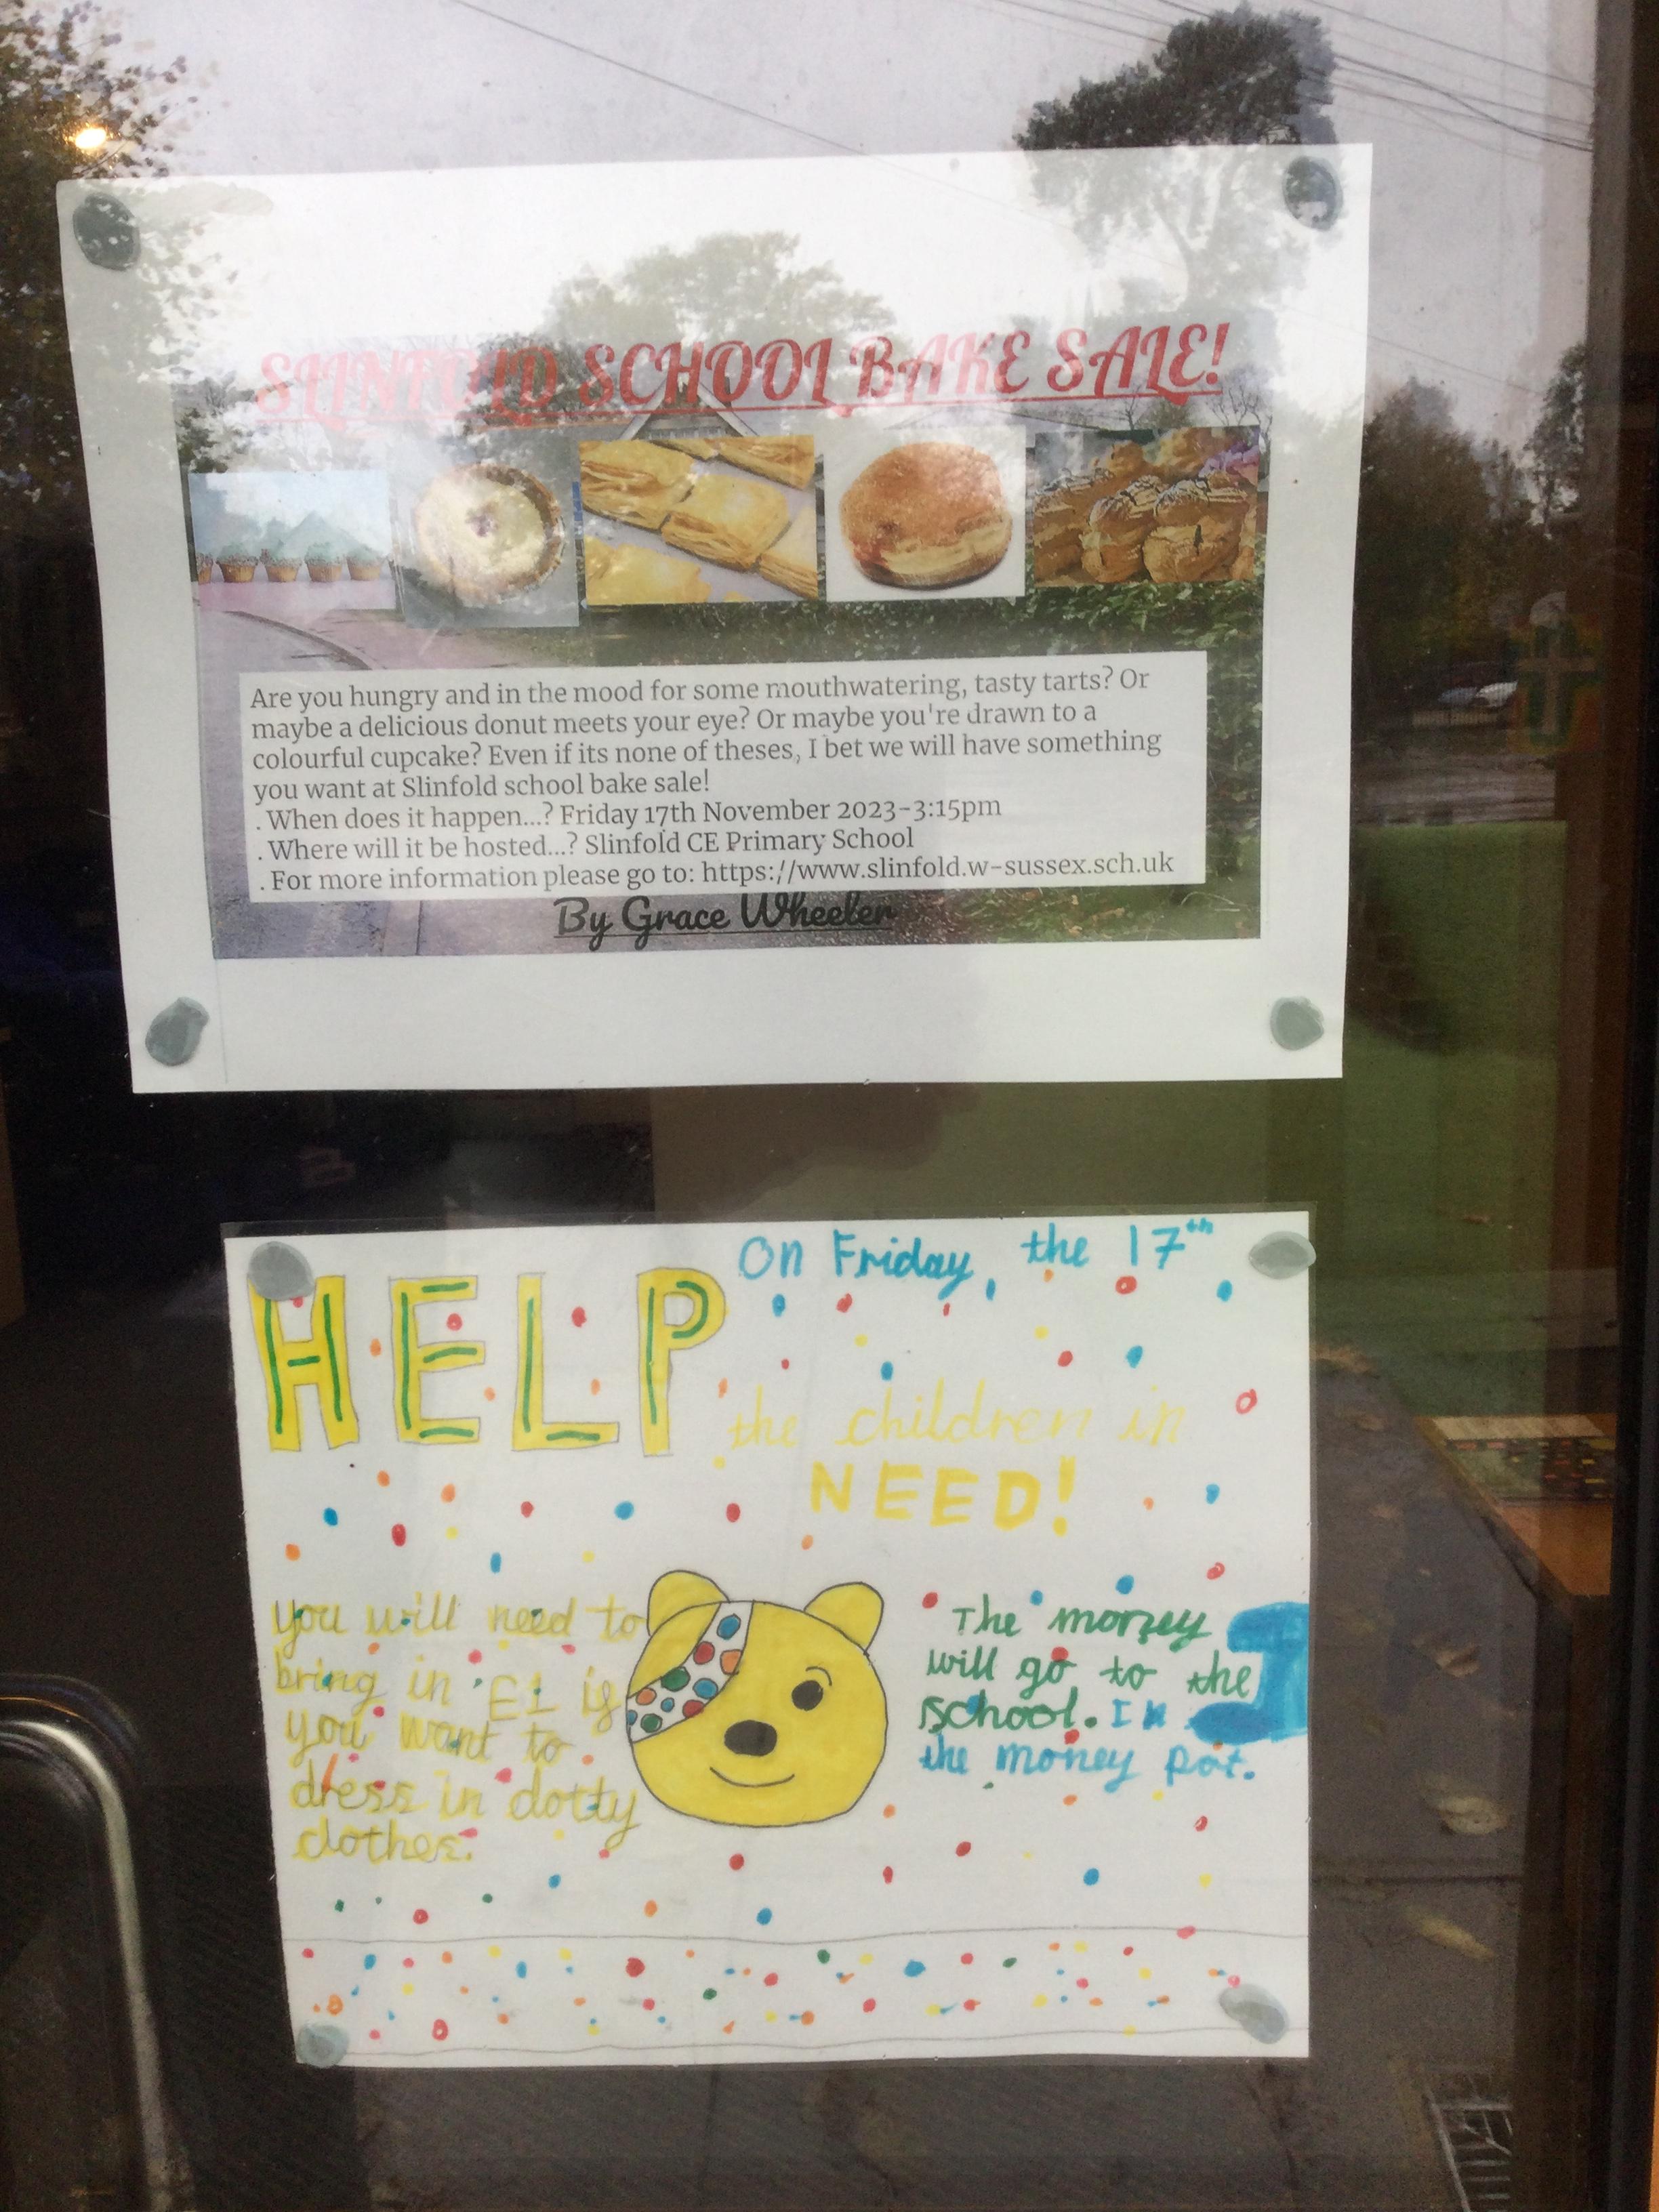 SLINFOLD SCHOOL BAKE SALE!
Are you hungry and in the mood for some mouthwatering, tasty tarts? Or
maybe a delicious donut meets your eye? Or maybe you're drawn to a
colourful cupcake? Even if its none of theses, I bet we will have something
you want at Slinfold school bake sale!
. When does it happen...? Friday 17th November 2023-3:15pm
. Where will it be hosted...? Slinfold CE Primary School
. For more information please go to: https://www.slinfold.w-sussex.sch.uk
By Grace Wheeler
On Friday, the 17th
HELP
the children in
NEED!
you will need to
bring in £1 if
you want to
dress in dotty
clothes.
The money
will go to the
school. In
the money pot.